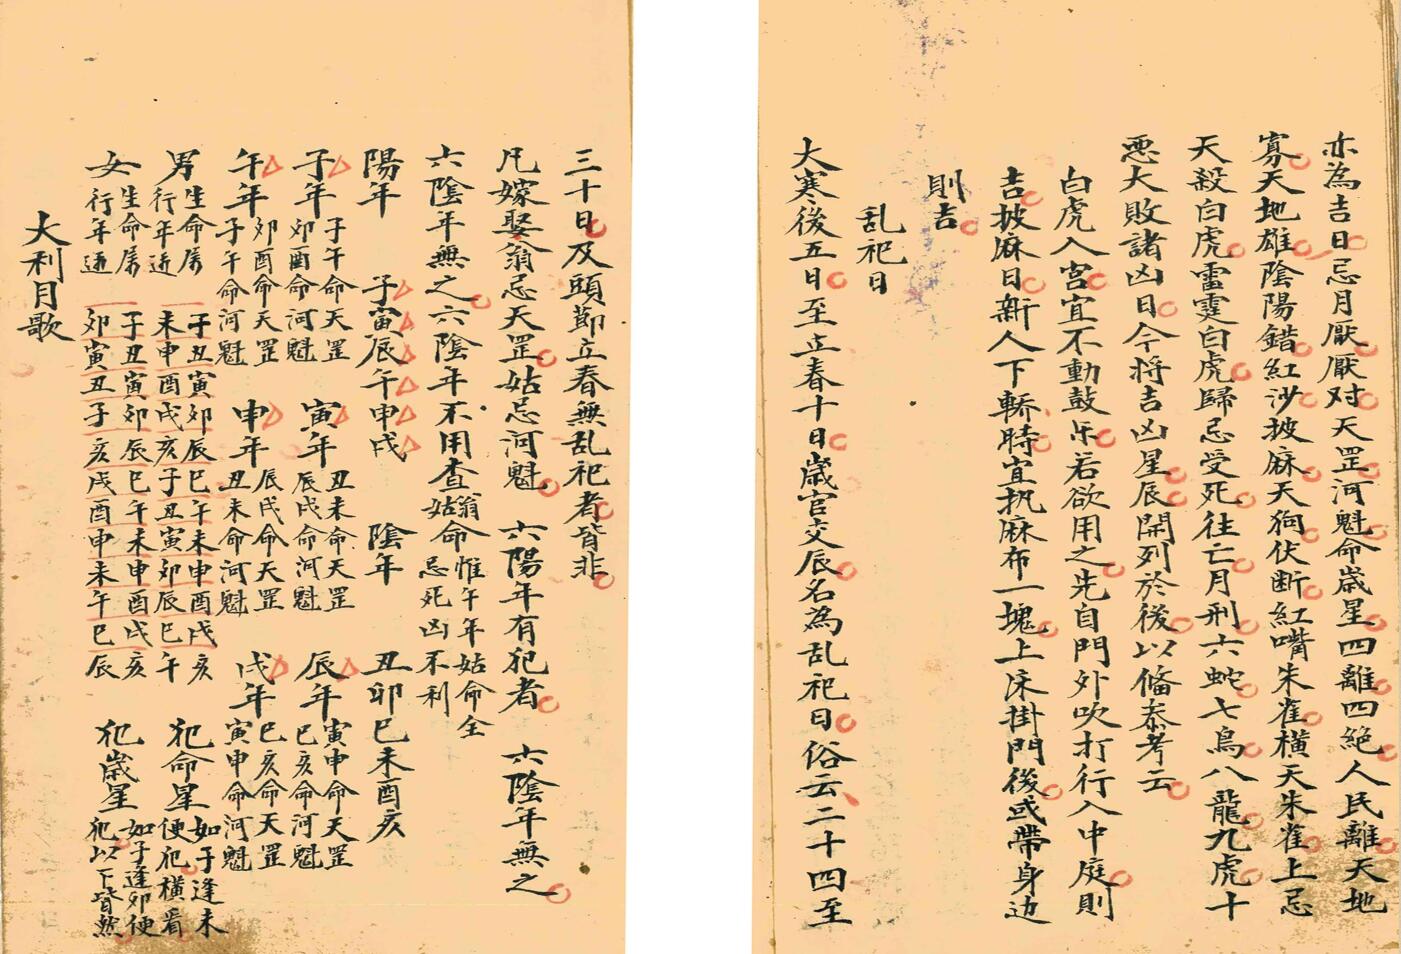 亦為吉日忌月厭厭对天罡河魁命歲星四離四絕人民離天地
寡天地雄陰陽錯紅沙披麻天狗伏断紅嘴朱雀橫天朱雀上忌
天殺白虎雷霆白虎歸忌受死往亡月刑六蛇七鳥八龍九虎十
悪大敗諸凶日今将吉凶星辰開列於後以俻叅考云
白虎入宮宜不動鼓乐若欲用之先自門外吹打行入中庭則
吉披麻日新人下轎時宜执麻布一塊上床掛門後或帶身边
則吉
乱祀日
大寒後五日至立春十日歲官交辰名為乱祀日俗云二十四至
三十日及頭節立春無乱祀者皆非
凡嫁娶翁忌天罡姑忌河魁 六陽年有犯者 六陰年無之
六陰年無之六陰年不用查翁姑命惟午年姑命全忌死凶不利
陽年 子寅辰午申戌 陰年 丑卯巳未酉亥
子年 子午命天罡 卯酉命河魁 寅年 丑未命天罡 辰戌命河魁 辰年 寅申命天罡 巳亥命河魁
午年 卯酉命天罡 子午命河魁 申年 辰戌命天罡 丑未命河魁 戌年 巳亥命天罡 寅申命河魁
男 生命属 子丑寅卯辰巳午未申酉戌亥 行年逝 未申酉戌亥子丑寅卯辰巳午 犯命星 如子逢未便犯橫看
女 生命属 子丑寅卯辰巳午未申酉戌亥 行年逝 卯寅丑子亥戌酉申未午巳辰 犯歲星 如子逢卯便犯以下皆然
大利月歌